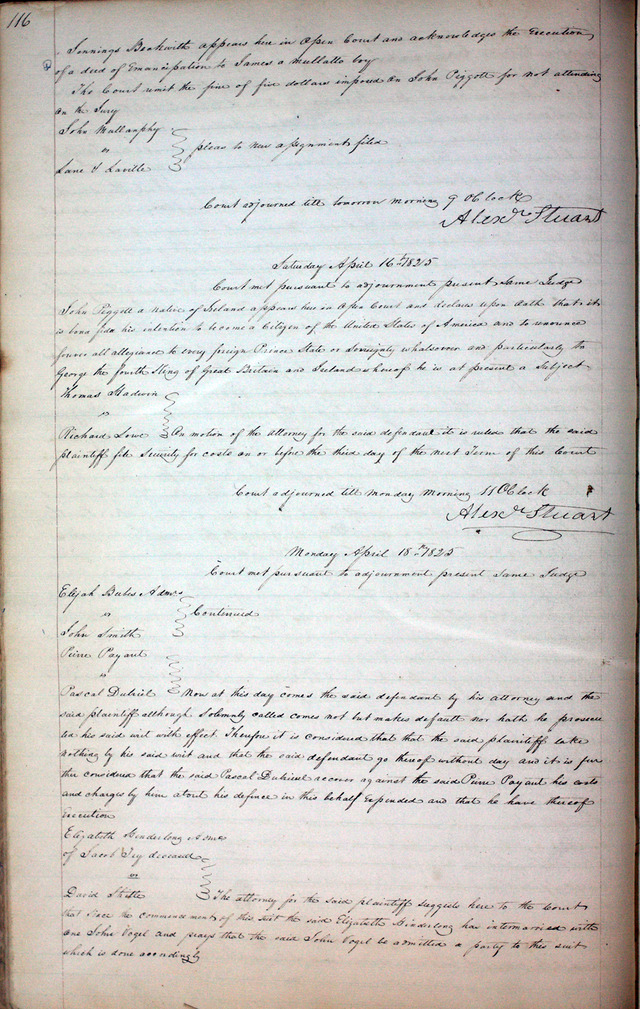 116
Jennings Beckwith appears here in Open Court and acknowledges the Execution
of a deed of Emancipation to James a Mullatto boy
The Court remit the fine of five dollars imposed on John Piggott for not attending
on the Jury
John Mullanphy
vs
Lane & Laville
pleas to New assignment filed
Court adjourned till tomorrow morning 9 OClock
Alexr Stuart
Saturday April 16th 1825
Court met pursuant to adjournment present Same Judge
John Piggott a native of Ireland appears here in Open Court and declares upon Oath that it
is bona fide his intention to become a Citizen of the United States of America and to renounce
forever all allegiance to every foreign Prince State or Sovereignty whatsoever and particularly to
George the fourth King of Great Britain and Ireland whereof he is at present a Subject
Thomas
vs
Richard Lowe On motion of the attorney for the said defendant it is ruled that the said
plaintiff file Security for costs on or before the third day of the next Term of this Court
Court adjourned till Monday Morning 11 OClock
Alexr Stuart
Monday April 18th 1825
Court met pursuant to adjournment present Same Judge
Elijah Admr
vs
Continued
John Smith
Pierre Payant
vs
Pascal Now at this day comes the said defendant by his attorney and the
said plaintiff although Solemnly called comes not but makes default nor hath he prosecu
ted his said writ with effect Therefore it is considered that that the said plaintiff take
nothing by his said writ and that the said defendant go thereof without day and it is fur
ther considered that the said Pascal recover against the said Pierre Payant his costs
and charges by him about his defence in this behalf Expended and that he have thereof
Execution
Elizabeth Hinderlong Admx
of Jacob Fry deceased
vs
David The attorney for the said plaintiff suggests here to the Court
that since the commencement of this suit the said Elizabeth Hinderlong has intermarried with
one John Vogel and prays that the said John Vogel be admitted a party to this suit
which is done accordingly